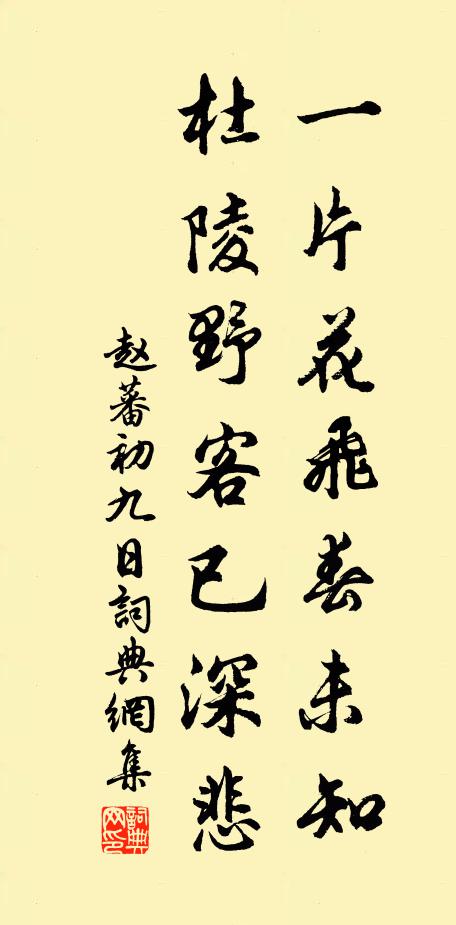 一片花飛春未知
杜陵野客已深悲
赵蕃初九日詞典網集
詞典網印